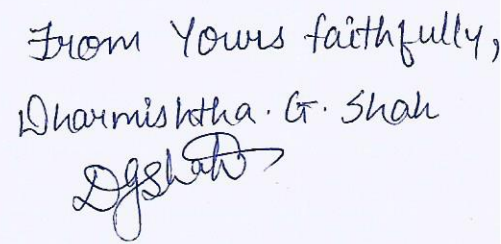 From Yours faithfully,
Dharmishtha. G. Shah
DGShah